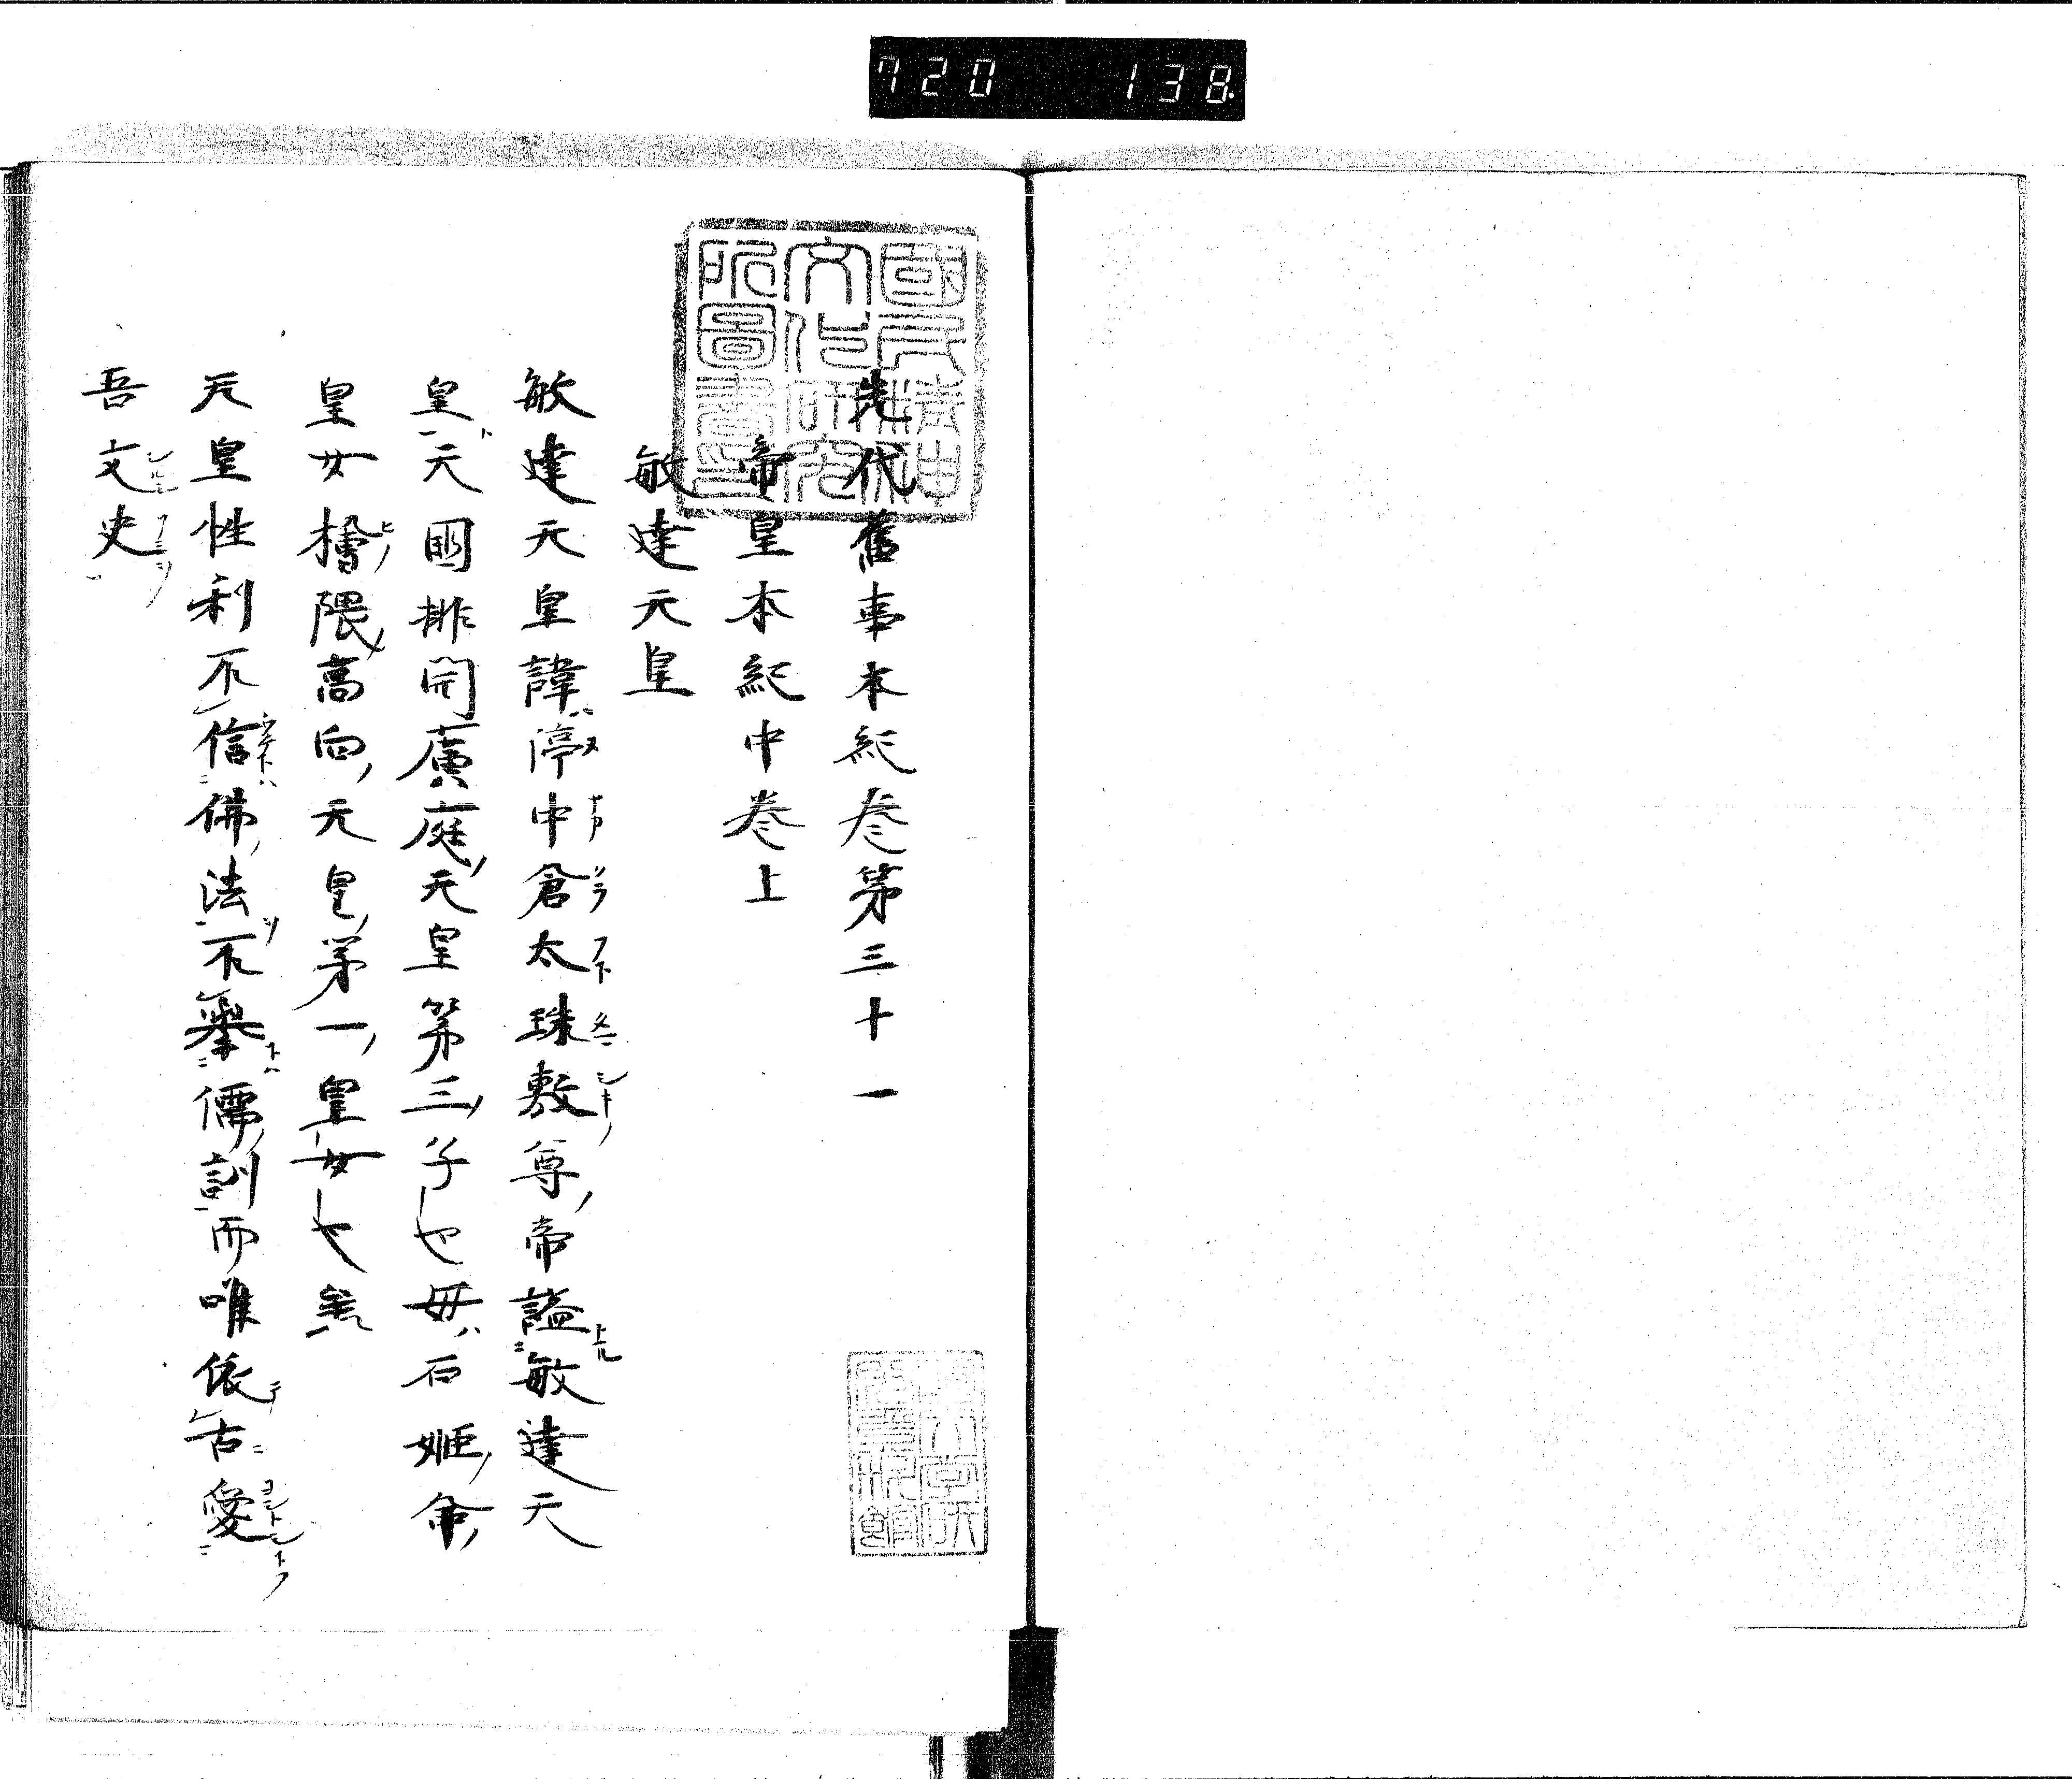 720 138
國民精神
文化研究
所圖書印
先代舊事本紀巻第三十一
帝皇本紀中巻上
敏達天皇
敏達天皇諱渟中倉太珠敷尊帝謚敏達天
皇天國排開廣庭天皇第三子也毋石姫命
皇女檜隈高向天皇第一皇女也矣
天皇性利不信佛法不擧儒訓而唯依古愛
吾文史